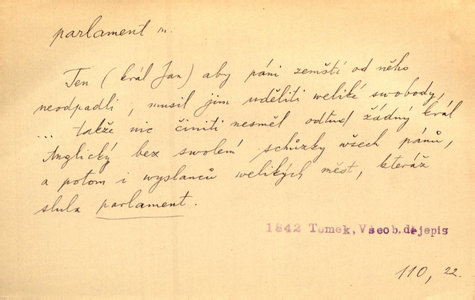 parlament m.
Ten (král Jan) aby páni zemští od něho
neodpadli, musil jim uděliti weliké swobody,
... takže nic činiti nesměl odtud žádný král
Anglický bez swolení schůzky wšech pánů,
a potom i wyslanců welikých měst, kteráž
slula parlament.
1842 Tomek, Všeob. dějepis
110, 22.